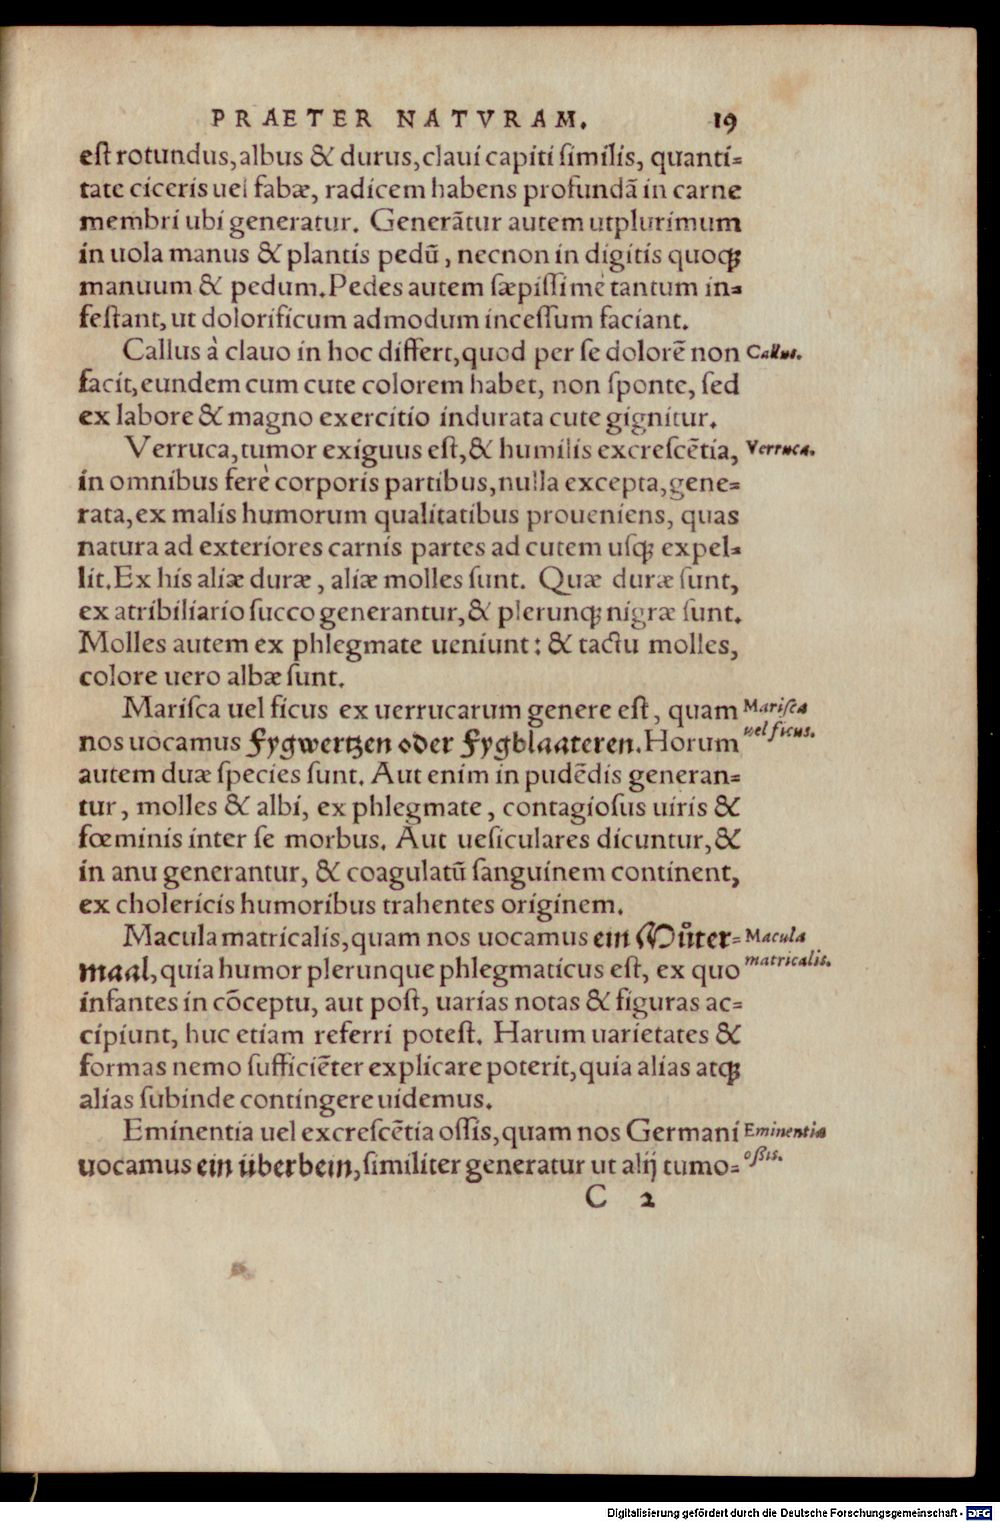 PRAETER NATVRAM. 19
eſt rotundus, albus & durus, claui capiti ſimilis, quanti=
tate ciceris uel fabæ, radicem habens profundā in carne
membri ubi generatur. Generātur autem utplurimum
in uola manus & plantis pedū, necnon in digitis quoqꝫ
manuum & pedum. Pedes autem ſæpiſſimè tantum in=
feſtant, ut dolorificum admodum inceſſum faciant.
Callus à clauo in hoc differt, quod per ſe dolorē non
Callus.
facit, eundem cum cute colorem habet, non ſponte, ſed
ex labore & magno exercitio indurata cute gignitur.
Verruca, tumor exiguus eſt, & humilis excreſcētia,
Verruca.
in omnibus ferè corporis partibus, nulla excepta, gene=
rata, ex malis humorum qualitatibus proueniens, quas
natura ad exteriores carnis partes ad cutem uſqꝫ expel=
lit. Ex his aliæ duræ, aliæ molles ſunt. Quæ duræ ſunt,
ex atribiliario ſucco generantur, & plerunqꝫ nigræ ſunt.
Molles autem ex phlegmate ueniunt: & tactu molles,
colore uero albæ ſunt.
Mariſca uel ficus ex uerrucarum genere eſt, quam
Mariſca
uel ficus.
nos uocamus Fygwertzen oder Fygblaateren. Horum
autem duæ ſpecies ſunt. Aut enim in pudēdis generan=
tur, molles & albi, ex phlegmate, contagioſus uiris &
fœminis inter ſe morbus. Aut ueſiculares dicuntur, &
in anu generantur, & coagulatū ſanguinem continent,
ex cholericis humoribus trahentes originem.
Macula matricalis, quam nos uocamus ein Můter=
Macula
matricalis.
maal, quia humor plerunque phlegmaticus eſt, ex quo
infantes in cōceptu, aut poſt, uarias notas & figuras ac=
cipiunt, huc etiam referri poteſt. Harum uarietates &
formas nemo ſufficiēter explicare poterit, quia alias atqꝫ
alias ſubinde contingere uidemus.
Eminentia uel excreſcētia oſſis, quam nos Germani
Eminentia
oßis.
uocamus ein überbein, ſimiliter generatur ut alij tumo=
C 2
Digitalisierung gefördert durch die Deutsche Forschungsgemeinschaft - DFG